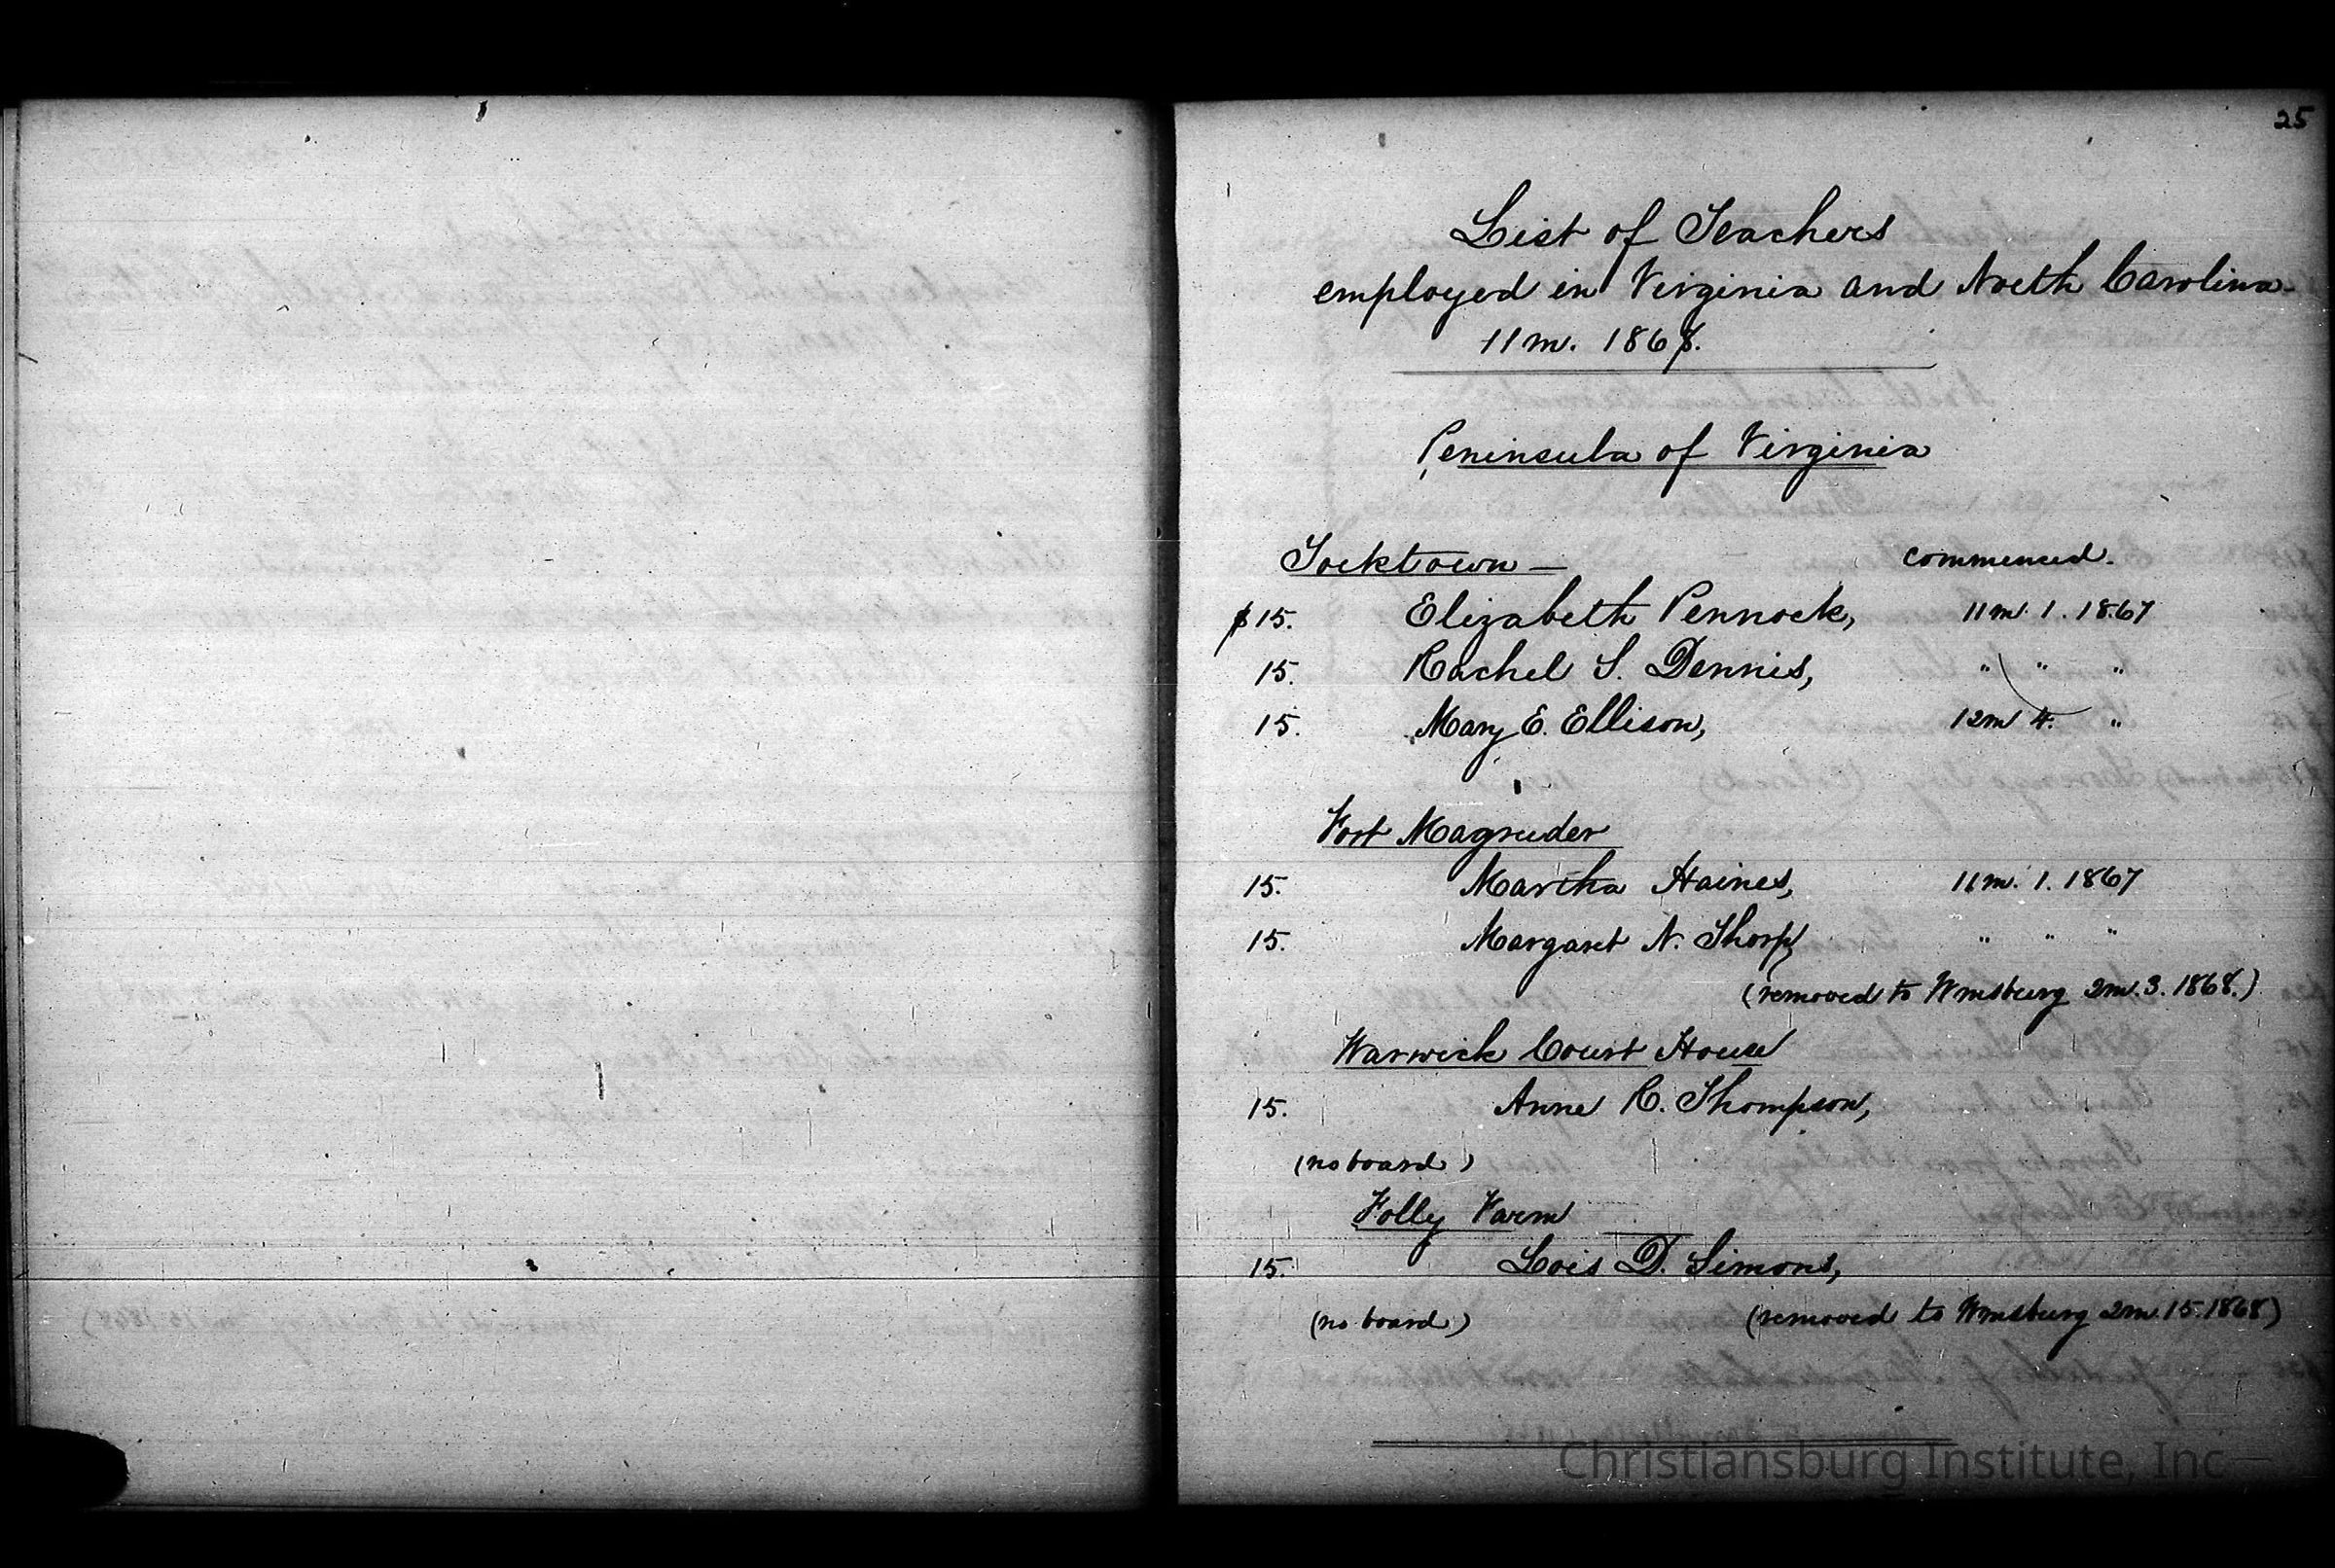 25
List of Teachers
employed in Virginia and North Carolina
11m. 1868.
Peninsula of Virginia
Yorktown — commenced.
$15. Elizabeth Pennock, 11m. 1. 1867
15. Rachel S. Dennis, " " "
15. Mary E. Ellison, 12m 4. "
Fort Magruder
15. Martha Haines, 11m. 1. 1867
15. Margaret N. Thorp, " " "
(removed to Wmsburg 2m. 3. 1868.)
Warwick Court House
15. Anne R. Thompson,
(no board)
Folly Farm
15. Lois D. Simons,
(no board) (removed to Wmsburg 2m. 15. 1868)
Christiansburg Institute, Inc